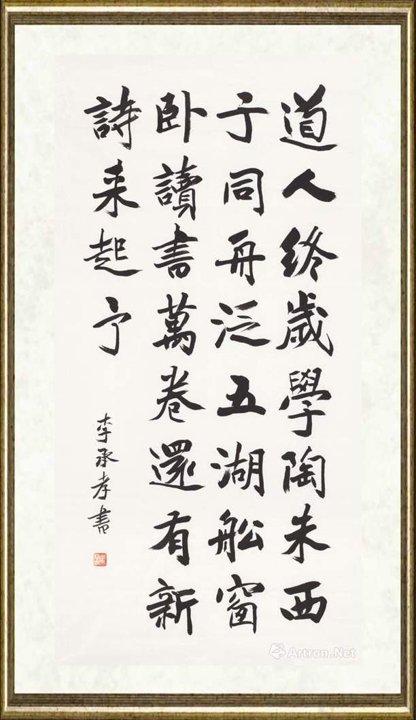 道人終歲學陶朱西
子同舟泛五湖舩窗
卧讀書萬卷還有新
詩来起予
李承孝書
Artron.Net